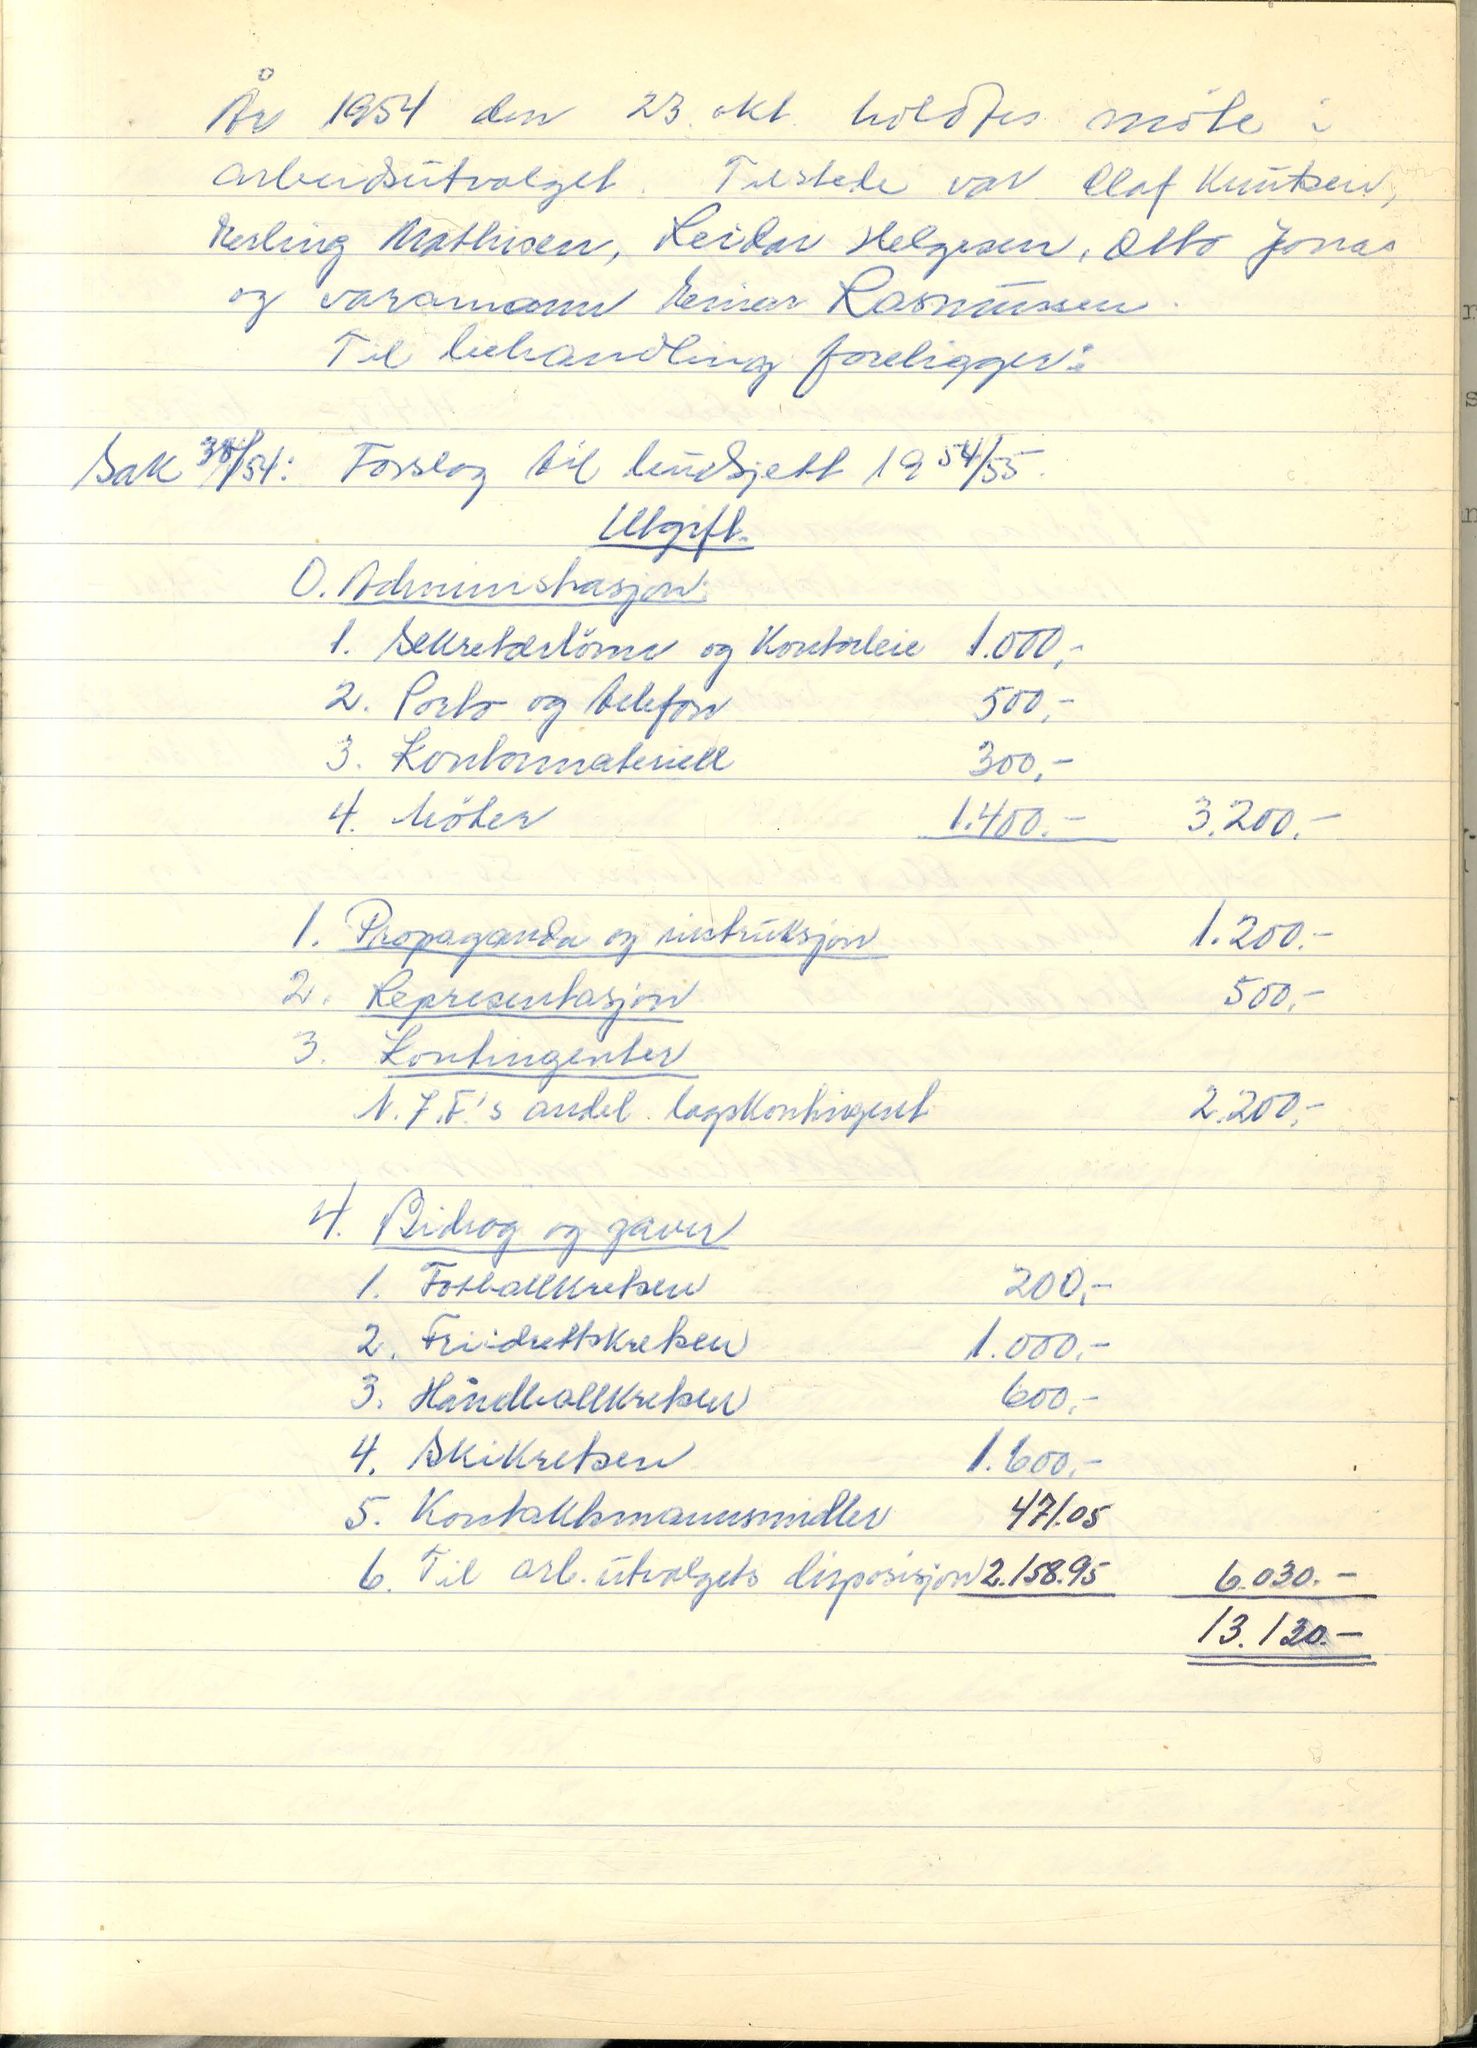 År 1954 den 23. okt. holdtes möte i
arbeidsutvalget. Tilstede var Olaf Knutsen,
Erling Mathisen, Reidar Helgesen, Otto Jonas
og varamann Einar Rasmussen.
Til behandling foreligger:
Sak 38/54: Forslag til budsjett 1954/55.
Utgift.
0. Administrasjon:
1. Sekretærlönn og Kontorleie 1.000,-
2. Porto og telefon 500,-
3. Kontormateriell 300,-
4. Möter 1.400.- 3.200.-
1. Propaganda og instruksjon 1.200.-
2. Representasjon 500,-
3. Kontingenter
N.I.F.'s andel lagskontingent 2.200,-
4. Bidrag og gaver
1. Fotballkretsen 200,-
2. Friidrettskretsen 1.000,-
3. Håndballkretsen 600,-
4. Skikretsen 1.600,-
5. Kontaktsmannsmidler 471.05
6. Til arb. utvalgets disposisjon 2.158.95 6.030.-
13.130.-